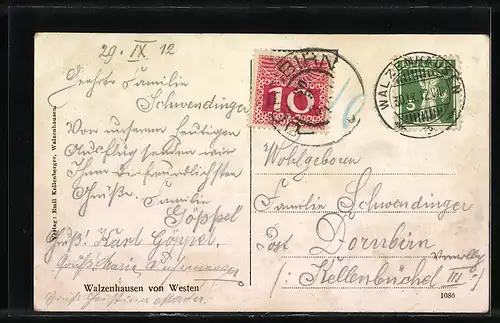 29. IX 12
Geehrte Familie
Schwendinger
Von unserem heutigen
Ausflug senden wir
Ihnen die freundlichsten
Grüße. Familie
Göppel
Gruß! Karl Göppel,
Gruß Marie
Gruß Christina
Walzenhausen von Westen
Verlag: Emil Kellenberger, Walzenhausen
10
WALZENHAUSEN
5
10
Wohlgeboren
Familie Schwendinger
Post Dornbirn
Vorarlbg
(: Kellenbüchel III :)
1086